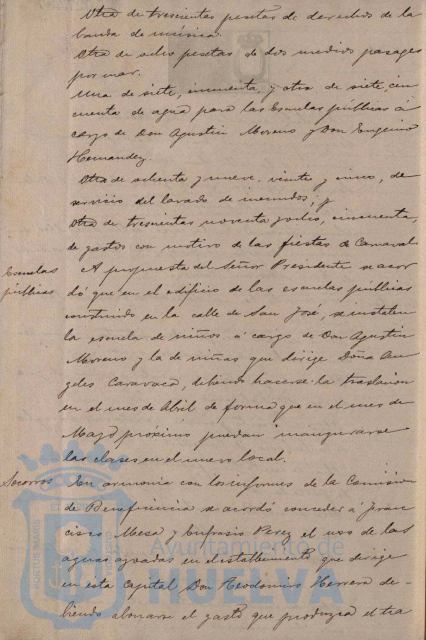 Otra de trescientas pesetas de derechos de la
banda de música.
Otra de ocho pesetas de dos medios pasages
por mar.
Una de siete, cincuenta, y otra de siete, cin
cuenta de agua para las Escuelas públicas á
cargo de Don Agustin Moreno y Don Eugenio
Hernandez.
Otra de ochenta y nueve, veinte y cinco, de
servicio del lavado de menudos; y
Otra de trescientas noventa y ocho, cincuenta,
de gastos con motivo de las fiestas de Carnaval.
Escuelas
públicas
A propuesta del Señor Presidente se acor
dó que en el edificio de las escuelas públicas
construido en la calle de San José, se instalen
la escuela de niños á cargo de Don Agustin
Moreno y la de niñas que dirige Doña An
geles Caravaca, debiendo hacerse la traslacion
en el mes de Abril de forma que en el mes de
Mayo próximo puedan inaugurarse
las clases en el nuevo local.
Socorros
En armonia con los informes de la Comision
de Beneficencia se acordó conceder á Fran
cisco Mesa y Eufrasio Perez el uso de las
aguas azoadas en el establecimiento que dirige
en esta Capital Don Teodomiro Herrera de-
biendo abonarse el gasto que produzca el tra
Ayuntamiento de
HUELVA
PORTUS MARIS